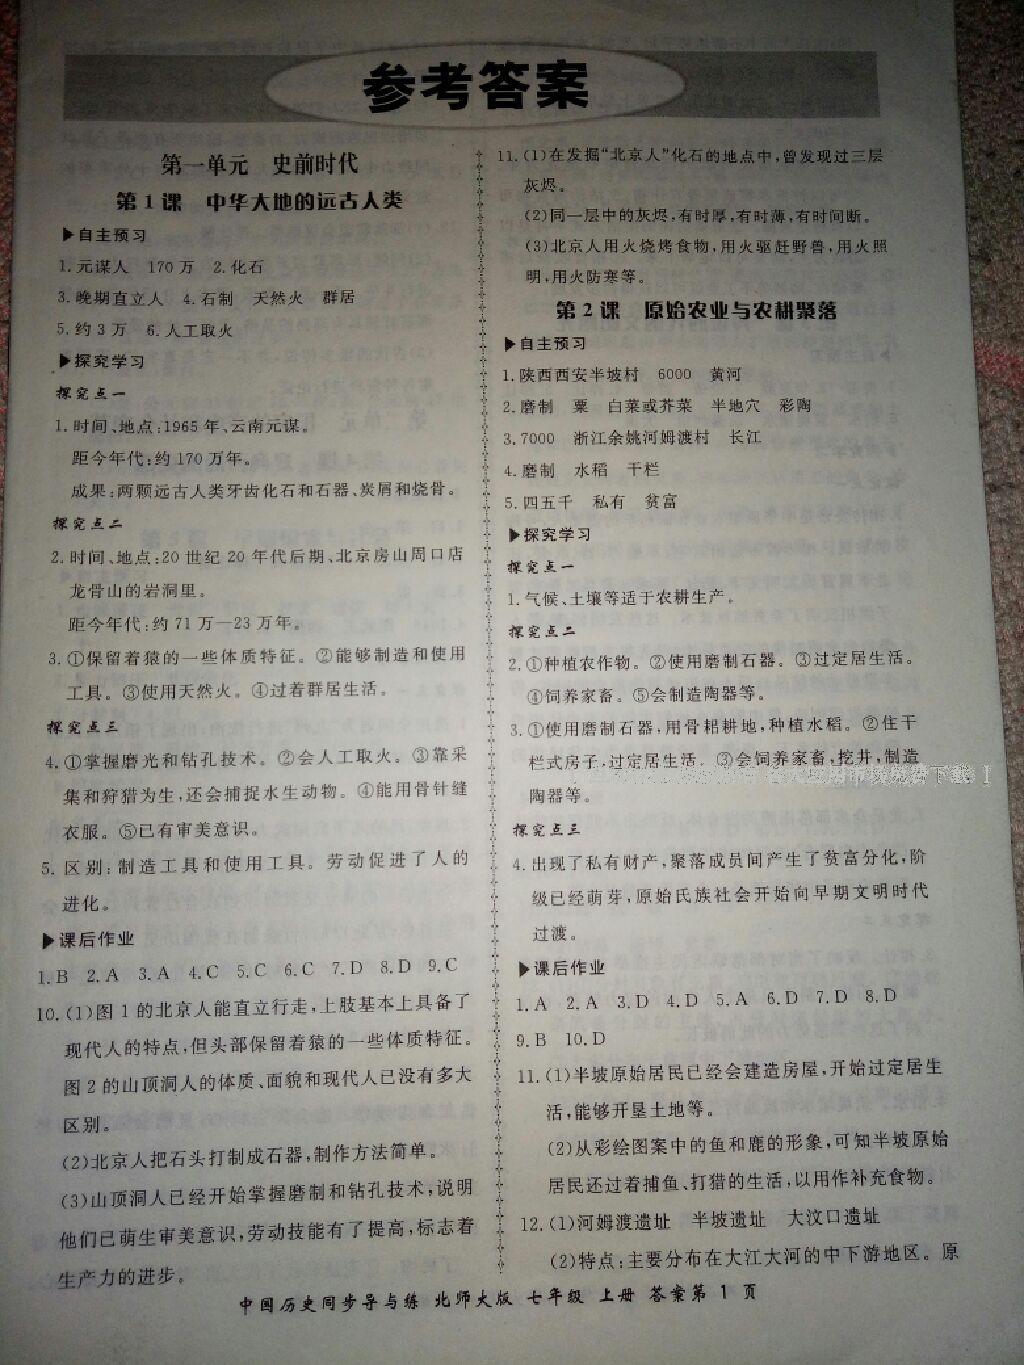 参考答案
第一单元 史前时代
第1课 中华大地的远古人类
▶自主预习
1.元谋人 170万 2.化石
3.晚期直立人 4.石制 天然火 群居
5.约3万 6.人工取火
▶探究学习
探究点一
1.时间、地点:1965年、云南元谋。
距今年代:约170万年。
成果:两颗远古人类牙齿化石和石器、炭屑和烧骨。
探究点二
2.时间、地点:20世纪20年代后期、北京房山周口店
龙骨山的岩洞里。
距今年代:约71万—23万年。
3.①保留着猿的一些体质特征。②能够制造和使用
工具。③使用天然火。④过着群居生活。
探究点三
4.①掌握磨光和钻孔技术。②会人工取火。③靠采
集和狩猎为生,还会捕捉水生动物。④能用骨针缝
衣服。⑤已有审美意识。
5.区别:制造工具和使用工具。劳动促进了人的
进化。
▶课后作业
1.B 2.A 3.A 4.C 5.C 6.C 7.D 8.D 9.C
10.(1)图1的北京人能直立行走,上肢基本上具备了
现代人的特点,但头部保留着猿的一些体质特征。
图2的山顶洞人的体质、面貌和现代人已没有多大
区别。
(2)北京人把石头打制成石器,制作方法简单。
(3)山顶洞人已经开始掌握磨制和钻孔技术,说明
他们已萌生审美意识,劳动技能有了提高,标志着
生产力的进步。
11.(1)在发掘“北京人”化石的地点中,曾发现过三层
灰烬。
(2)同一层中的灰烬,有时厚,有时薄,有时间断。
(3)北京人用火烧烤食物,用火驱赶野兽,用火照
明,用火防寒等。
第2课 原始农业与农耕聚落
▶自主预习
1.陕西西安半坡村 6000 黄河
2.磨制 粟 白菜或芥菜 半地穴 彩陶
3.7000 浙江余姚河姆渡村 长江
4.磨制 水稻 干栏
5.四五千 私有 贫富
▶探究学习
探究点一
1.气候、土壤等适于农耕生产。
探究点二
2.①种植农作物。②使用磨制石器。③过定居生活。
④饲养家畜。⑤会制造陶器等。
3.①使用磨制石器,用骨耜耕地,种植水稻。②住干
栏式房子,过定居生活。③会饲养家畜,挖井,制造
陶器等。
探究点三
4.出现了私有财产,聚落成员间产生了贫富分化,阶
级已经萌芽,原始氏族社会开始向早期文明时代
过渡。
▶课后作业
1.A 2.A 3.D 4.D 5.A 6.D 7.D 8.D
9.B 10.D
11.(1)半坡原始居民已经会建造房屋,开始过定居生
活,能够开垦土地等。
(2)从彩绘图案中的鱼和鹿的形象,可知半坡原始
居民还过着捕鱼、打猎的生活,以用作补充食物。
12.(1)河姆渡遗址 半坡遗址 大汶口遗址
(2)特点:主要分布在大江大河的中下游地区。原
中国历史同步导与练 北师大版 七年级 上册 答案第 1 页